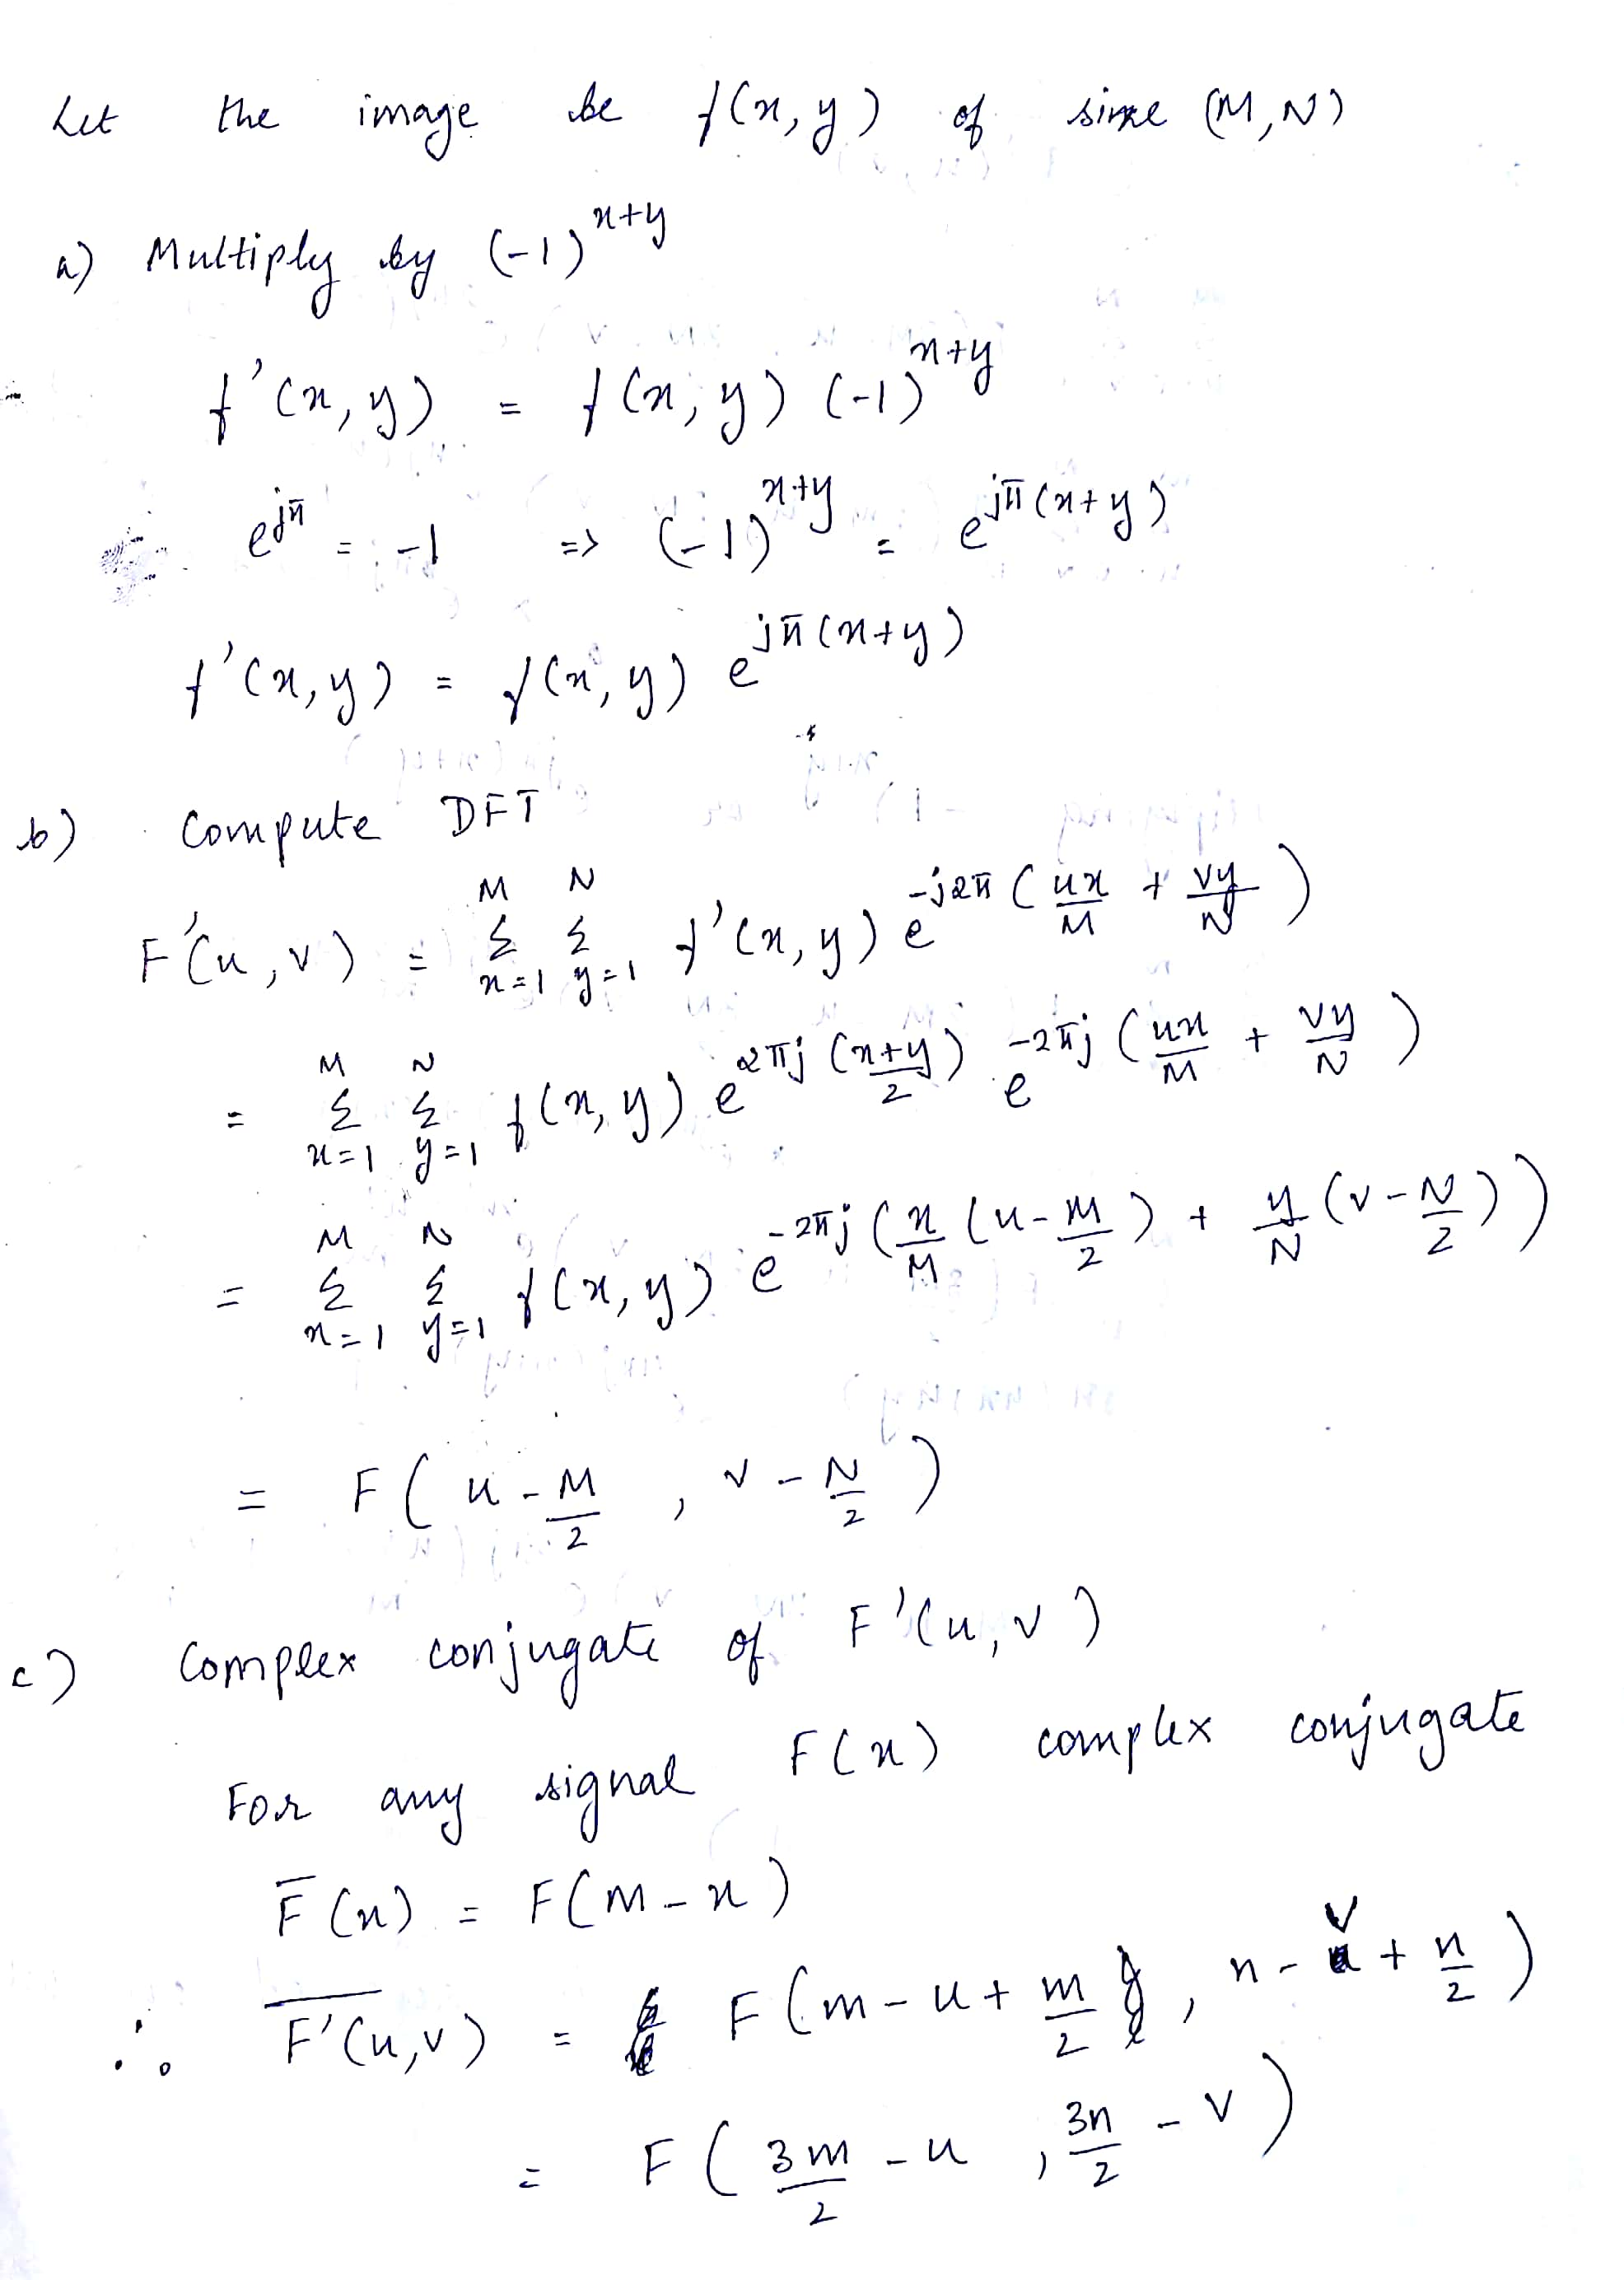 Let the image be f(x, y) of size (M, N)
a) Multiply by (-1)^{x+y}
f'(x, y) = f(x, y) (-1)^{x+y}
e^{jπ} = -1 => (-1)^{x+y} = e^{jπ(x+y)}
f'(x, y) = f(x, y) e^{jπ(x+y)}
b) Compute DFT
F'(u, v) = Σ_{x=1}^{M} Σ_{y=1}^{N} f'(x, y) e^{-j2π(ux/M + vy/N)}
= Σ_{x=1}^{M} Σ_{y=1}^{N} f(x, y) e^{2πj(x+y)/2} e^{-2πj(ux/M + vy/N)}
= Σ_{x=1}^{M} Σ_{y=1}^{N} f(x, y) e^{-2πj(x/M (u - M/2) + y/N (v - N/2))}
= F(u - M/2, v - N/2)
c) Complex conjugate of F'(u, v)
For any signal F(x) complex conjugate
F̅(x) = F(M - x)
∴ \overline{F'(u, v)} = F(m - u + m/2, n - v + n/2)
= F(3m/2 - u, 3n/2 - v)